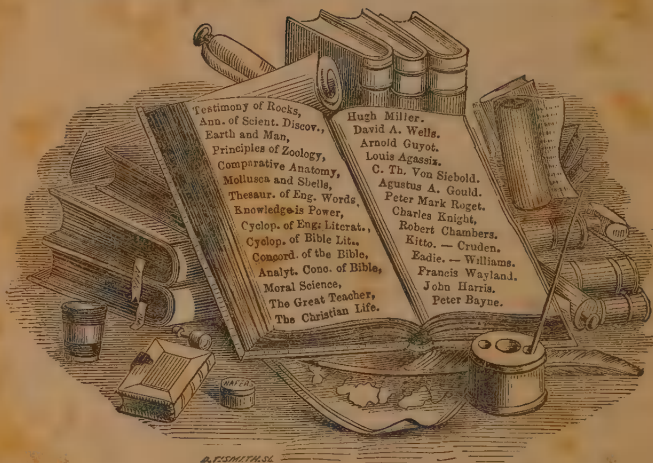 Testimony of Rocks,
Ann. of Scient. Discov.,
Earth and Man,
Principles of Zoology,
Comparative Anatomy,
Mollusca and Shells,
Thesaur. of Eng. Words,
Knowledge is Power,
Cyclop. of Eng. Literat.,
Cyclop. of Bible Lit..
Concord. of the Bible,
Analyt. Conc. of Bible,
Moral Science,
The Great Teacher,
The Christian Life.
Hugh Miller.
David A. Wells.
Arnold Guyot.
Louis Agassiz.
C. Th. Von Siebold.
Agustus A. Gould.
Peter Mark Roget.
Charles Knight,
Robert Chambers.
Kitto. — Cruden.
Eadie. — Williams.
Francis Wayland.
John Harris.
Peter Bayne.
WAFER
D.T. SMITH. SC.